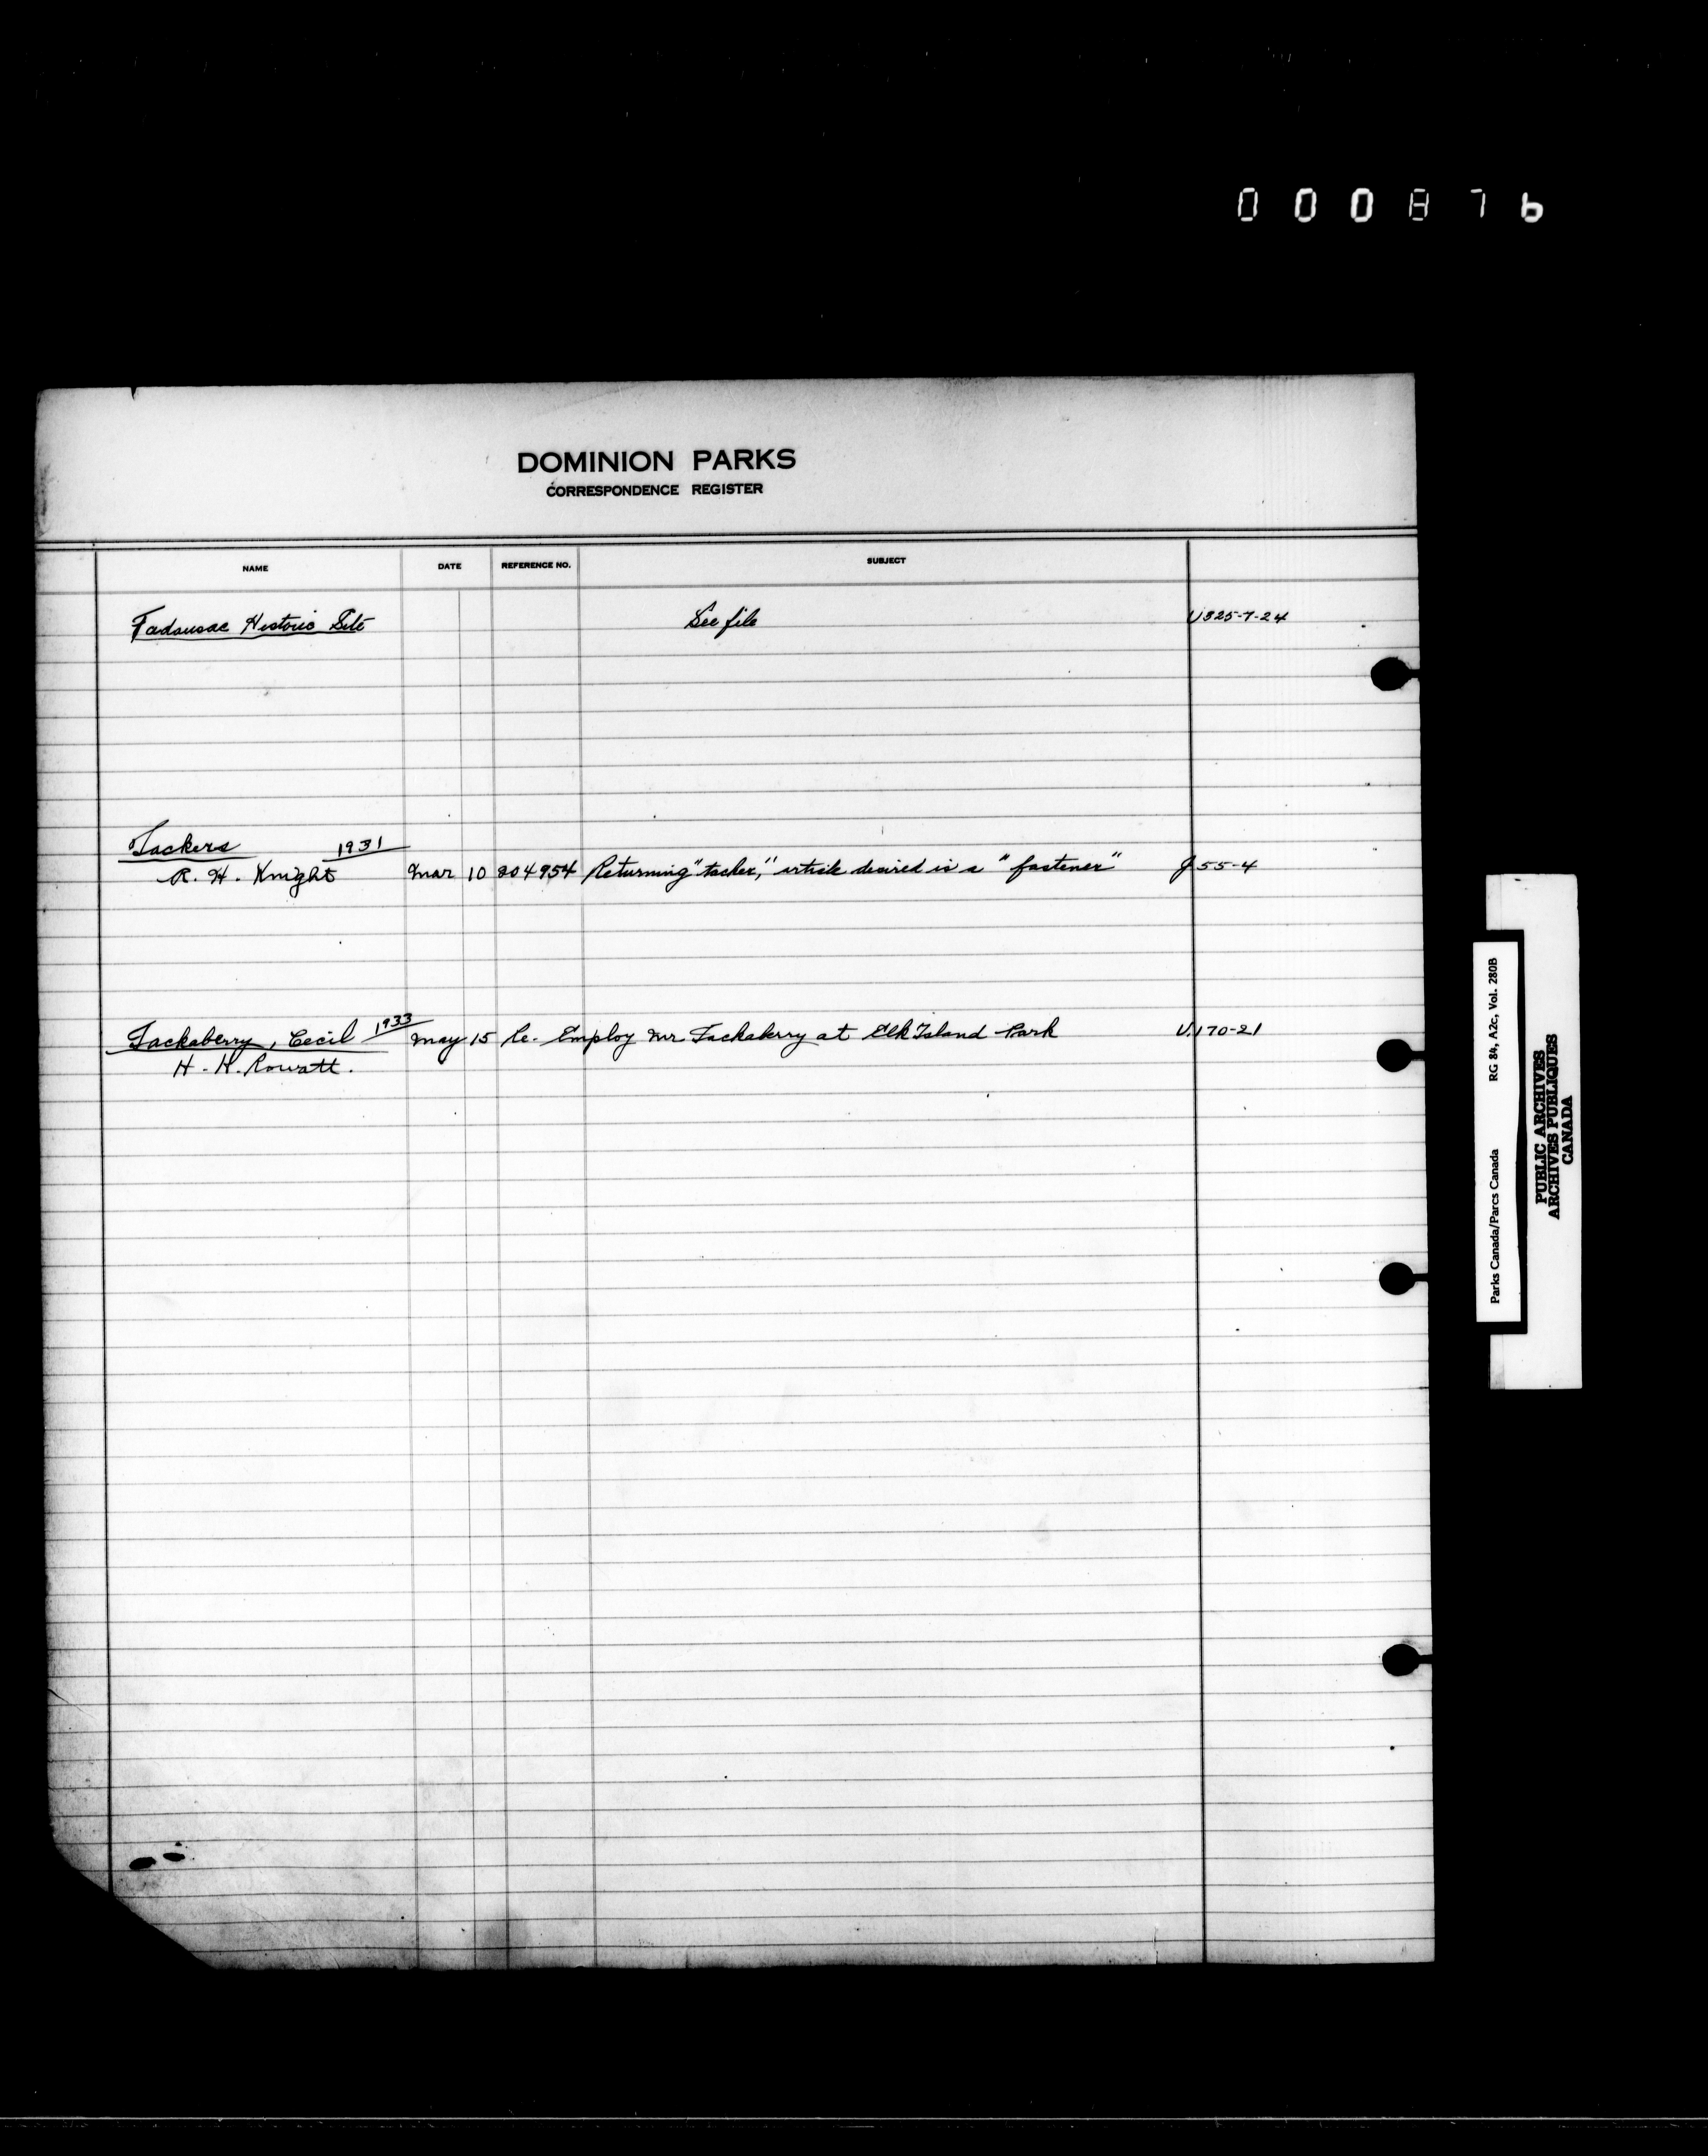 000876
DOMINION PARKS
CORRESPONDENCE REGISTER
NAME DATE REFERENCE NO. SUBJECT
Tadousac Historic Site See file U325-7-24
Tackers 1931
R. H. Knight Mar 10 204954 Returning "tacker," article desired is a "fastener" J55-4
Tackaberry, Cecil 1933 May 15 Re. Employ Mr Tackaberry at Elk Island Park U.170-21
H. H. Rowatt.
Parks Canada/Parcs Canada RG 84, A2c, Vol. 280B
PUBLIC ARCHIVES
ARCHIVES PUBLIQUES
CANADA